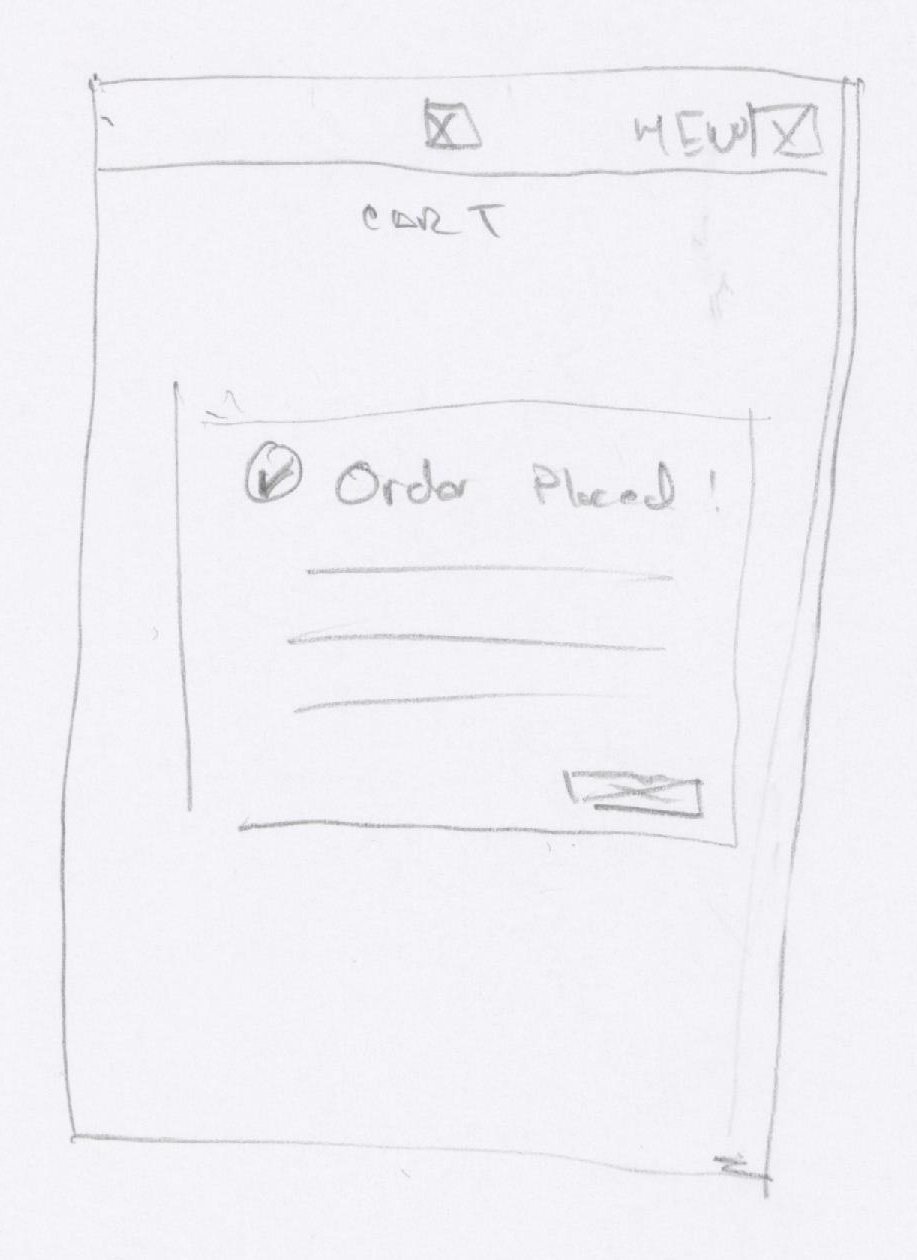 MENU
CART
Order Placed!